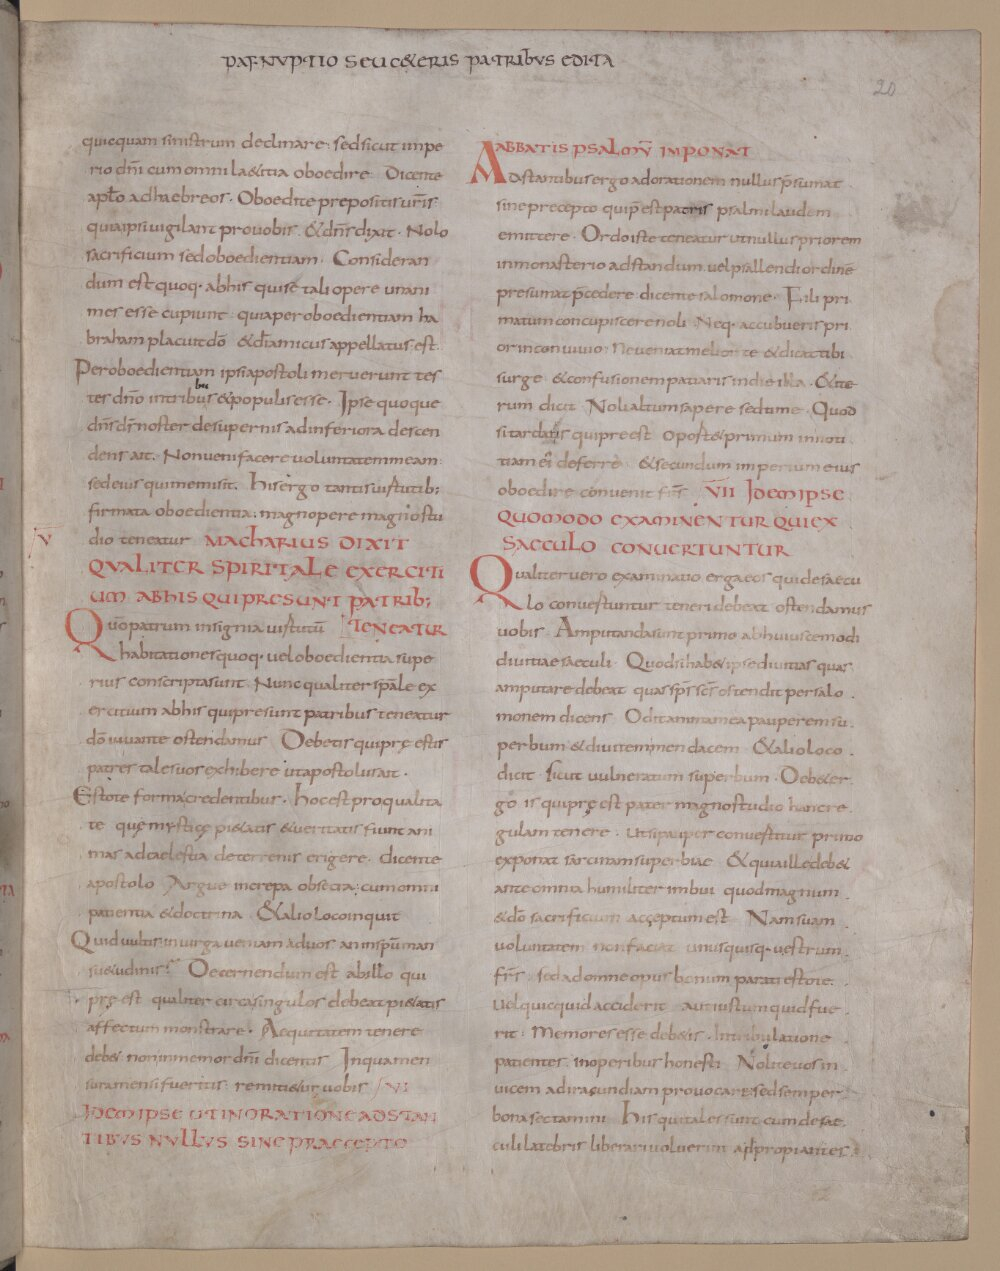 PAFNUPTIO SEU CETERIS PATRIBUS EDITA
20
quicquam sinistrum declinare; sed sicut impe
rio dn̄i cum omni laetitia oboedire. Dicente
apłto ad hebreos. Oboedite prepositis ur̄is
quia ipsi uigilant pro uobis. & dn̄s dixit. Nolo
sacrificium sed oboedientiam. Consideran
dum est quoq. ab his qui se tali opere unani
mes esse cupiunt. quia per oboedientiam ha
braham placuit dō & dī amicus appellatus est.
Per oboedientiam ipsi apostoli meruerunt tes
tes dn̄o in tribubus & populis esse. Ipse quoque
dn̄s dr̄ noster de supernis ad inferiora descen
dens ait. Non ueni facere uoluntatem meam
sed eius qui me misit. His ergo tantis uirtutib;
firmata oboedientia; magnopere magno stu
dio teneatur MACHARIUS DIXIT
V̄
QUALITER SPIRITALE EXERCITI
UM AB HIS QUI PRESUNT PATRIB;
Quō patrum insignia uirtutū TENEATUR
habitationes quoq. uel oboedientia supe
rius conscripta sunt. Nunc qualiter sp̄ale ex
ercitium ab his qui presunt patribus teneatur
dō iuuante ostendamus Debetis qui prę estis
patres tales uos exhibere ut apostolus ait.
Estote forma credentibus. hoc est pro qualita
te quę mysticę pietatis & ueritatis fiunt ani
mas ad caelestia de terrenis erigere. dicente
apostolo Argue increpa obsecra; cum omni
patientia & doctrina & alio loco inquit
Quid uultis in uirga ueniam ad uos an in sp̄u man
suetudinis? Decernendum est ab illo qui
prę est qualiter circa singulos debeat pietatis
affectum monstrare. Aequitatem tenere
deb& non inmemor dn̄i dicentis In qua men
sura mensi fueritis remitietur uobis VI
IDEM IPSE UT IN ORATIONE ADSTAN
TIBUS NULLUS SINE PRAECEPTO
ABBATIS PSALMŪ IMPONAT
Adstantibus ergo ad orationem nullus p̄sumat
sine precepto qui p̄est patris psalmi laudem
emittere. Ordo iste teneatur ut nullus priorem
in monasterio ad standum uel psallendi ordinē
presumat p̄cedere dicente salomone. Fili pri
matum concupiscere noli Neq. accubueris pri
or in conuiuio. Ne ueniat melior te & dicat tibi
surge & confusionem patiaris in die illa. & ite
rum dicit Noli altum sapere sed time. Quod
si tardatis qui pre est oport& primum in noti
tiam ei deferre & secundum imperium eius
oboedire conuenit fr̄s VII IDEM IPSE
QUOMODO EXAMINENTUR QUI EX
SAECULO CONUERTUNTUR
Qualiter uero examinatio erga eos qui de saecu
lo conuertuntur teneri debeat ostendamus
uobis Amputandae sunt primo ab huiuscemodi
diuitiae saeculi Quod si hab& ipse diuitias quas
amputare debeat quas sp̄s sc̄s ostendit per salo
monem dicens Odit anima mea pauperem su
perbum & diuitem mendacem & alio loco
dicit sicut uulneratum superbum. Deb& er
go is qui prę est pater magno studio hanc re
gulam tenere. ut si pauper conuertitur primo
exponat sarcinam superbiae & qui a ille deb&
ante omnia humiliter imbui quod magnum
& dō sacrificium acceptum est Nam suam
uoluntatem non faciat unusquisq. uestrum
fr̄s; sed ad omne opus bonum parati estote.
Uel quicquid acciderit aut iustum quid fue
rit. Memores esse deb&is. In tribulatione
patientes. in operibus honesti Nolite uos in
uicem ad iracundiam prouocare; sed semper
bona sectamini His qui tales sunt cum de sae
culi latebris liberari uoluerint adpropiantes